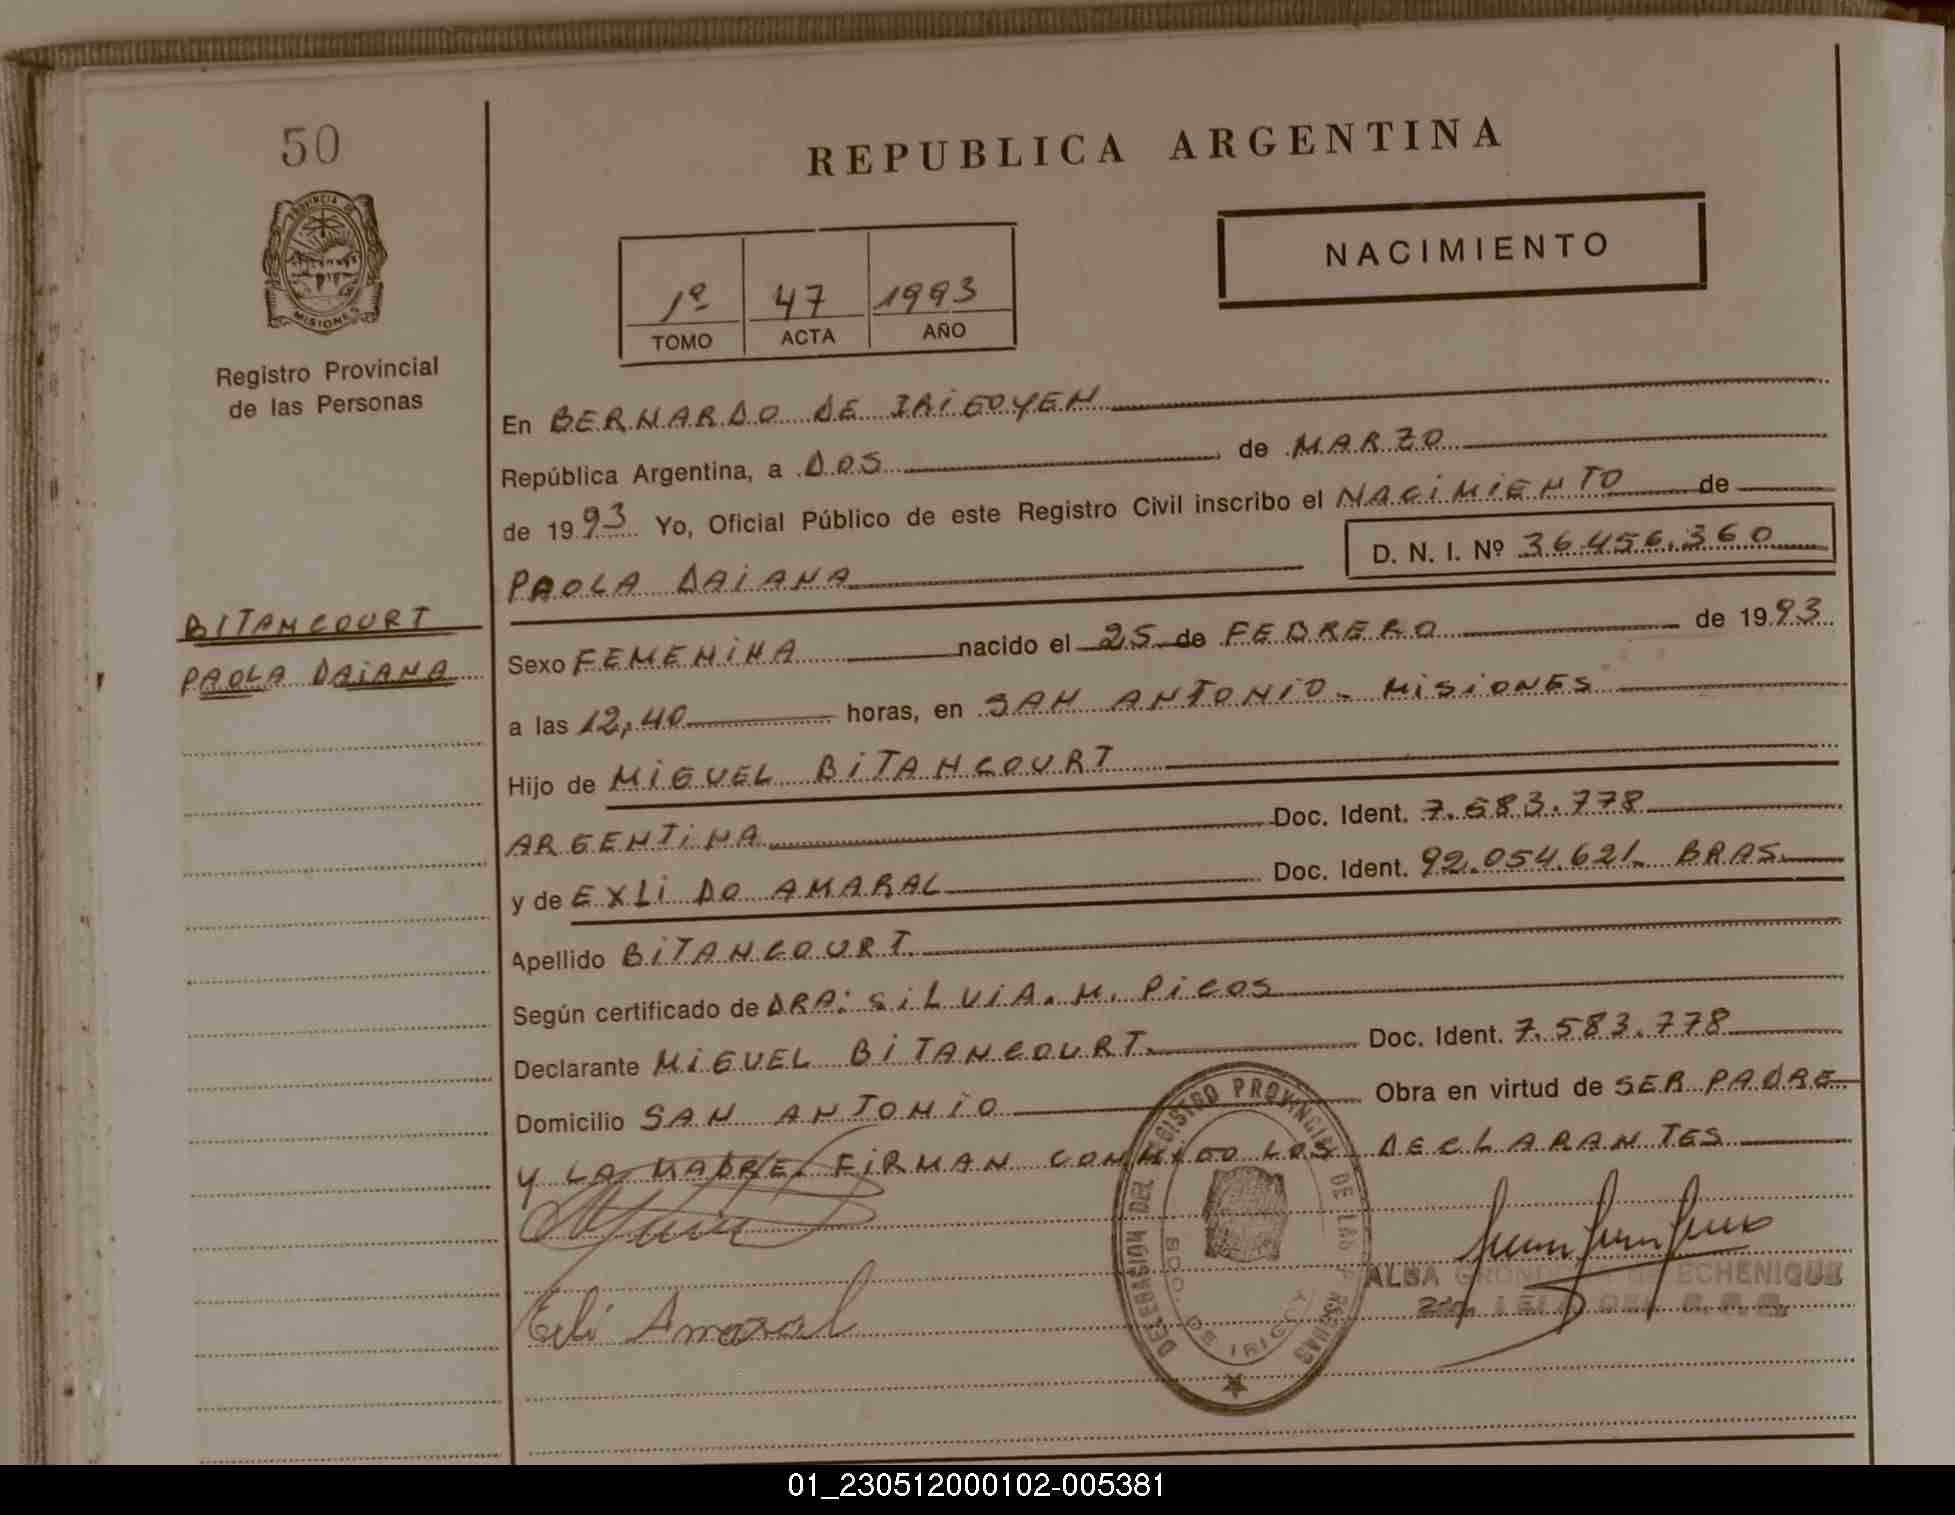 50
REPUBLICA ARGENTINA
PROVINCIA DE
MISIONES
NACIMIENTO
1º 47 1993
TOMO ACTA AÑO
Registro Provincial
de las Personas
En BERNARDO DE IRIGOYEN
República Argentina, a DOS de MARZO
de 1993 Yo, Oficial Público de este Registro Civil inscribo el NACIMIENTO de
D. N. I. Nº 36.456.360
PAOLA DAIANA
BITANCOURT
PAOLA DAIANA
Sexo FEMENINA nacido el 25 de FEBRERO de 1993
a las 12,40 horas, en SAN ANTONIO - MISIONES
Hijo de MIGUEL BITANCOURT
ARGENTINA Doc. Ident. 7.583.778
y de EXLI DO AMARAL Doc. Ident. 92.054.621. BRAS.
Apellido BITANCOURT.
Según certificado de DRA: SILVIA. M. PICOS
Declarante MIGUEL BITANCOURT. Doc. Ident. 7.583.778
Domicilio SAN ANTONIO Obra en virtud de SER PADRE
Y LA MADRE. FIRMAN CONMIGO LOS DECLARANTES
DELEGACION DEL REGISTRO PROVINCIAL DE LAS PERSONAS
BDO. DE IRIGOY
Amaral
ALBA DE ECHENIQUE
01_230512000102-005381